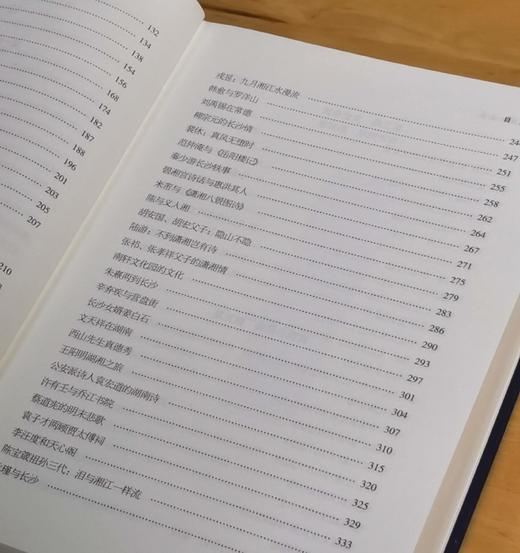 132
134
138
154
156
168
174
182
187
188
196
201
203
207
210
目
戎昱：九月湘江水漫流
韩愈与罗洋山 244
刘禹锡在常德 247
柳宗元的长沙情 251
裴休：真风无想时 255
范仲淹与《岳阳楼记》 258
秦少游长沙轶事 262
碧湘宫诗话与惠洪其人 264
米芾与《潇湘八景图诗》 267
陈与义人湘 271
胡安国、胡宏父子：隐山不隐 275
陆游：不到潇湘岂有诗 279
张栻、张孝祥父子的潇湘情 283
南轩文化园的文化 286
朱熹两到长沙 290
辛弃疾与营盘街 293
长沙女婿姜白石 297
文天祥在湖南 301
西山先生真德秀 304
王阳明湖湘之旅 307
公安派诗人袁宏道的湖南诗 310
许有壬与乔江书院 315
蔡道宪的明末悲歌 320
袁子才两顾贾太傅祠 325
李汪度和天心阁 329
陈宝箴祖孙三代：泪与湘江一样流 333
与长沙